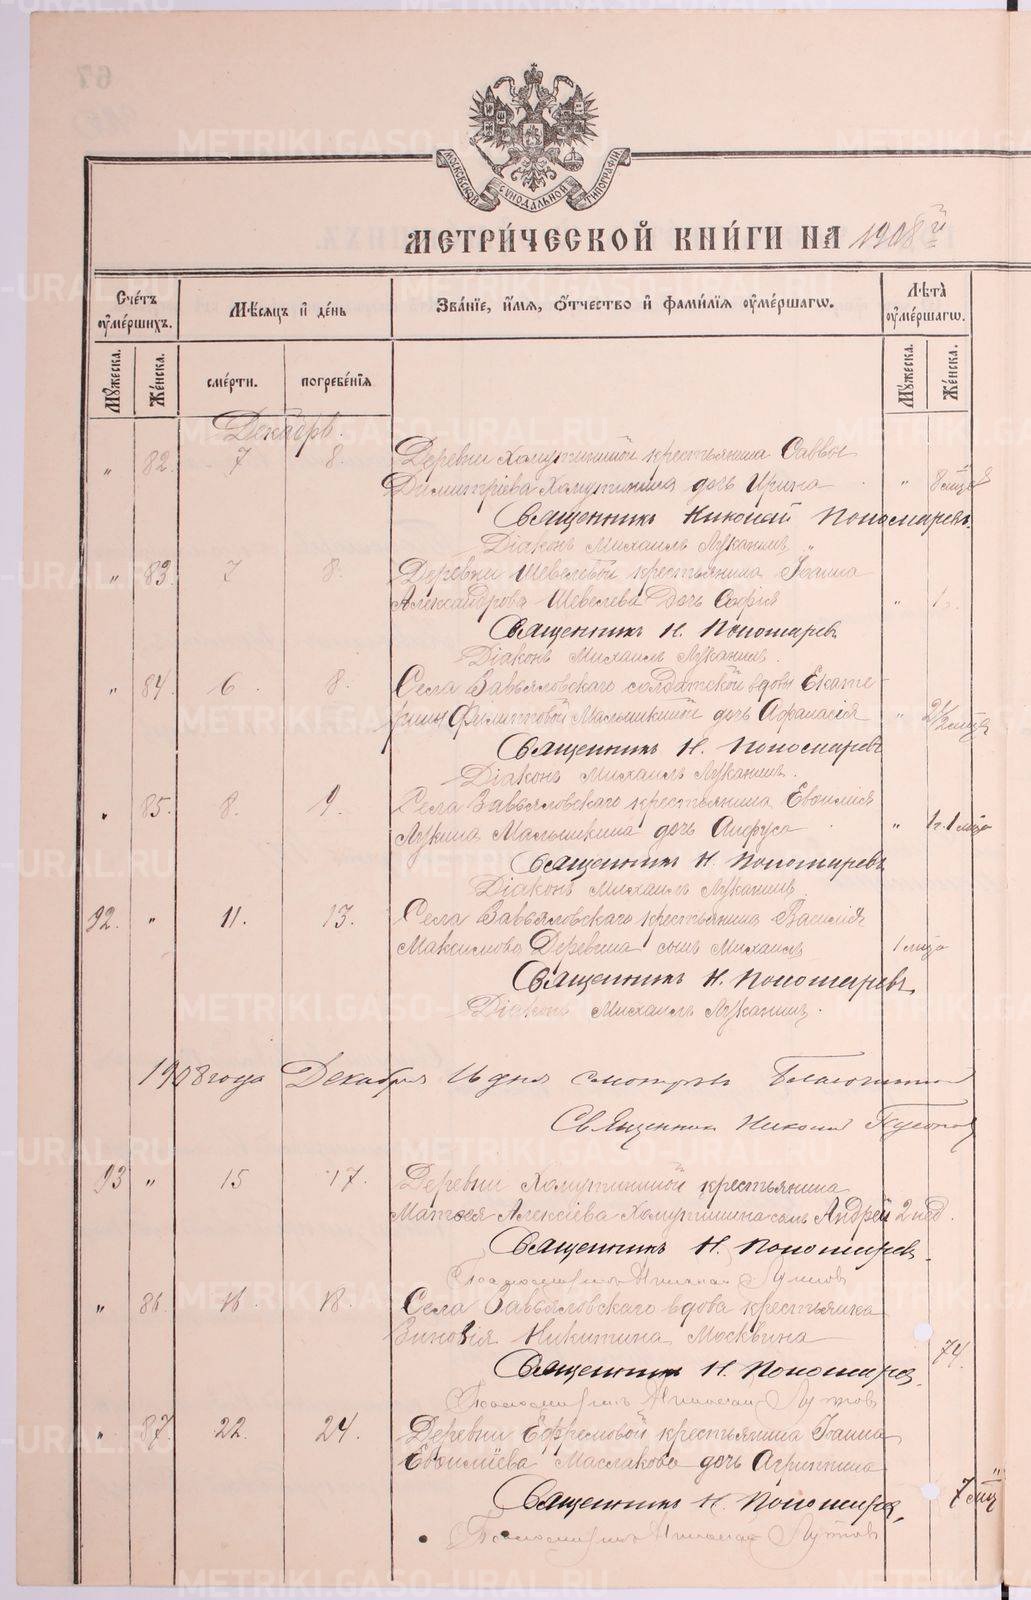 МОСКОВСКОЙ СѴНОДАЛЬНОЙ ТИПОГРАФІИ
МЕТРИ́ЧЕСКОЙ КНИ́ГИ НА 1908й
Сче́тъ ᲂумершихъ.
Мѣ́сяцъ и҆ де́нь
Зва́нїе, и҆́мя, ѻ҆́тчество и҆ фами́лїя ᲂуме́ршагѡ.
Лѣ́та ᲂуме́ршагѡ.
Мꙋ́жеска.
Же́нска.
сме́рти.
погребе́нїя
Мꙋ́жеска.
Же́нска.
Декабрь.
" 82. 7 8. Деревни Хомутининой крестьянина Саввы
Димитріева Хомутинина дочь Ирина " 8 мцев
Священникъ Николай Пономаревъ.
Діаконъ Михаилъ Луканинъ
" 83. 7 8. Деревни Шевелевой крестьянина Іоанна
Александрова Шевелева дочь Софія " 1 г.
Священникъ Н. Пономаревъ
Діаконъ Михаилъ Луканинъ.
" 84. 6. 8. Села Завьяловскаго солдатской вдовы Екате-
рины Филипповой Малышкиной дочь Афанасія " 2 1/2 мцев
Священникъ Н. Пономаревъ
Діаконъ Михаилъ Луканинъ.
" 85. 8. 9. Села Завьяловскаго крестьянина Евфимія
Лукина Малышкина дочь Анфуса " 1 г. 1 мца
Священникъ Н. Пономаревъ
Діаконъ Михаилъ Луканинъ
92. " 11. 13. Села Завьяловскаго крестьянина Василія
Максимова Деревнина сынъ Михаилъ 1 мца
Священникъ Н. Пономаревъ
Діаконъ Михаилъ Луканинъ.
1908 года Декабря 16 дня смотрѣлъ Благочинный
Священникъ Николай
93 " 15 17. Деревни Хомутининой крестьянина
Матѳея Алексіева Хомутинина сынъ Андрей 2 нед.
Священникъ Н. Пономаревъ.
" 86. 16. 18. Села Завьяловскаго вдова крестьянка
Зиновія Никитина Москвина 74.
Священникъ Н. Пономарев.
" 87. 22. 24. Деревни Ефремовой крестьянина Іоанна
Евфиміева Маслакова дочь Агриппина 7 мц
Священникъ Н. Пономарев.